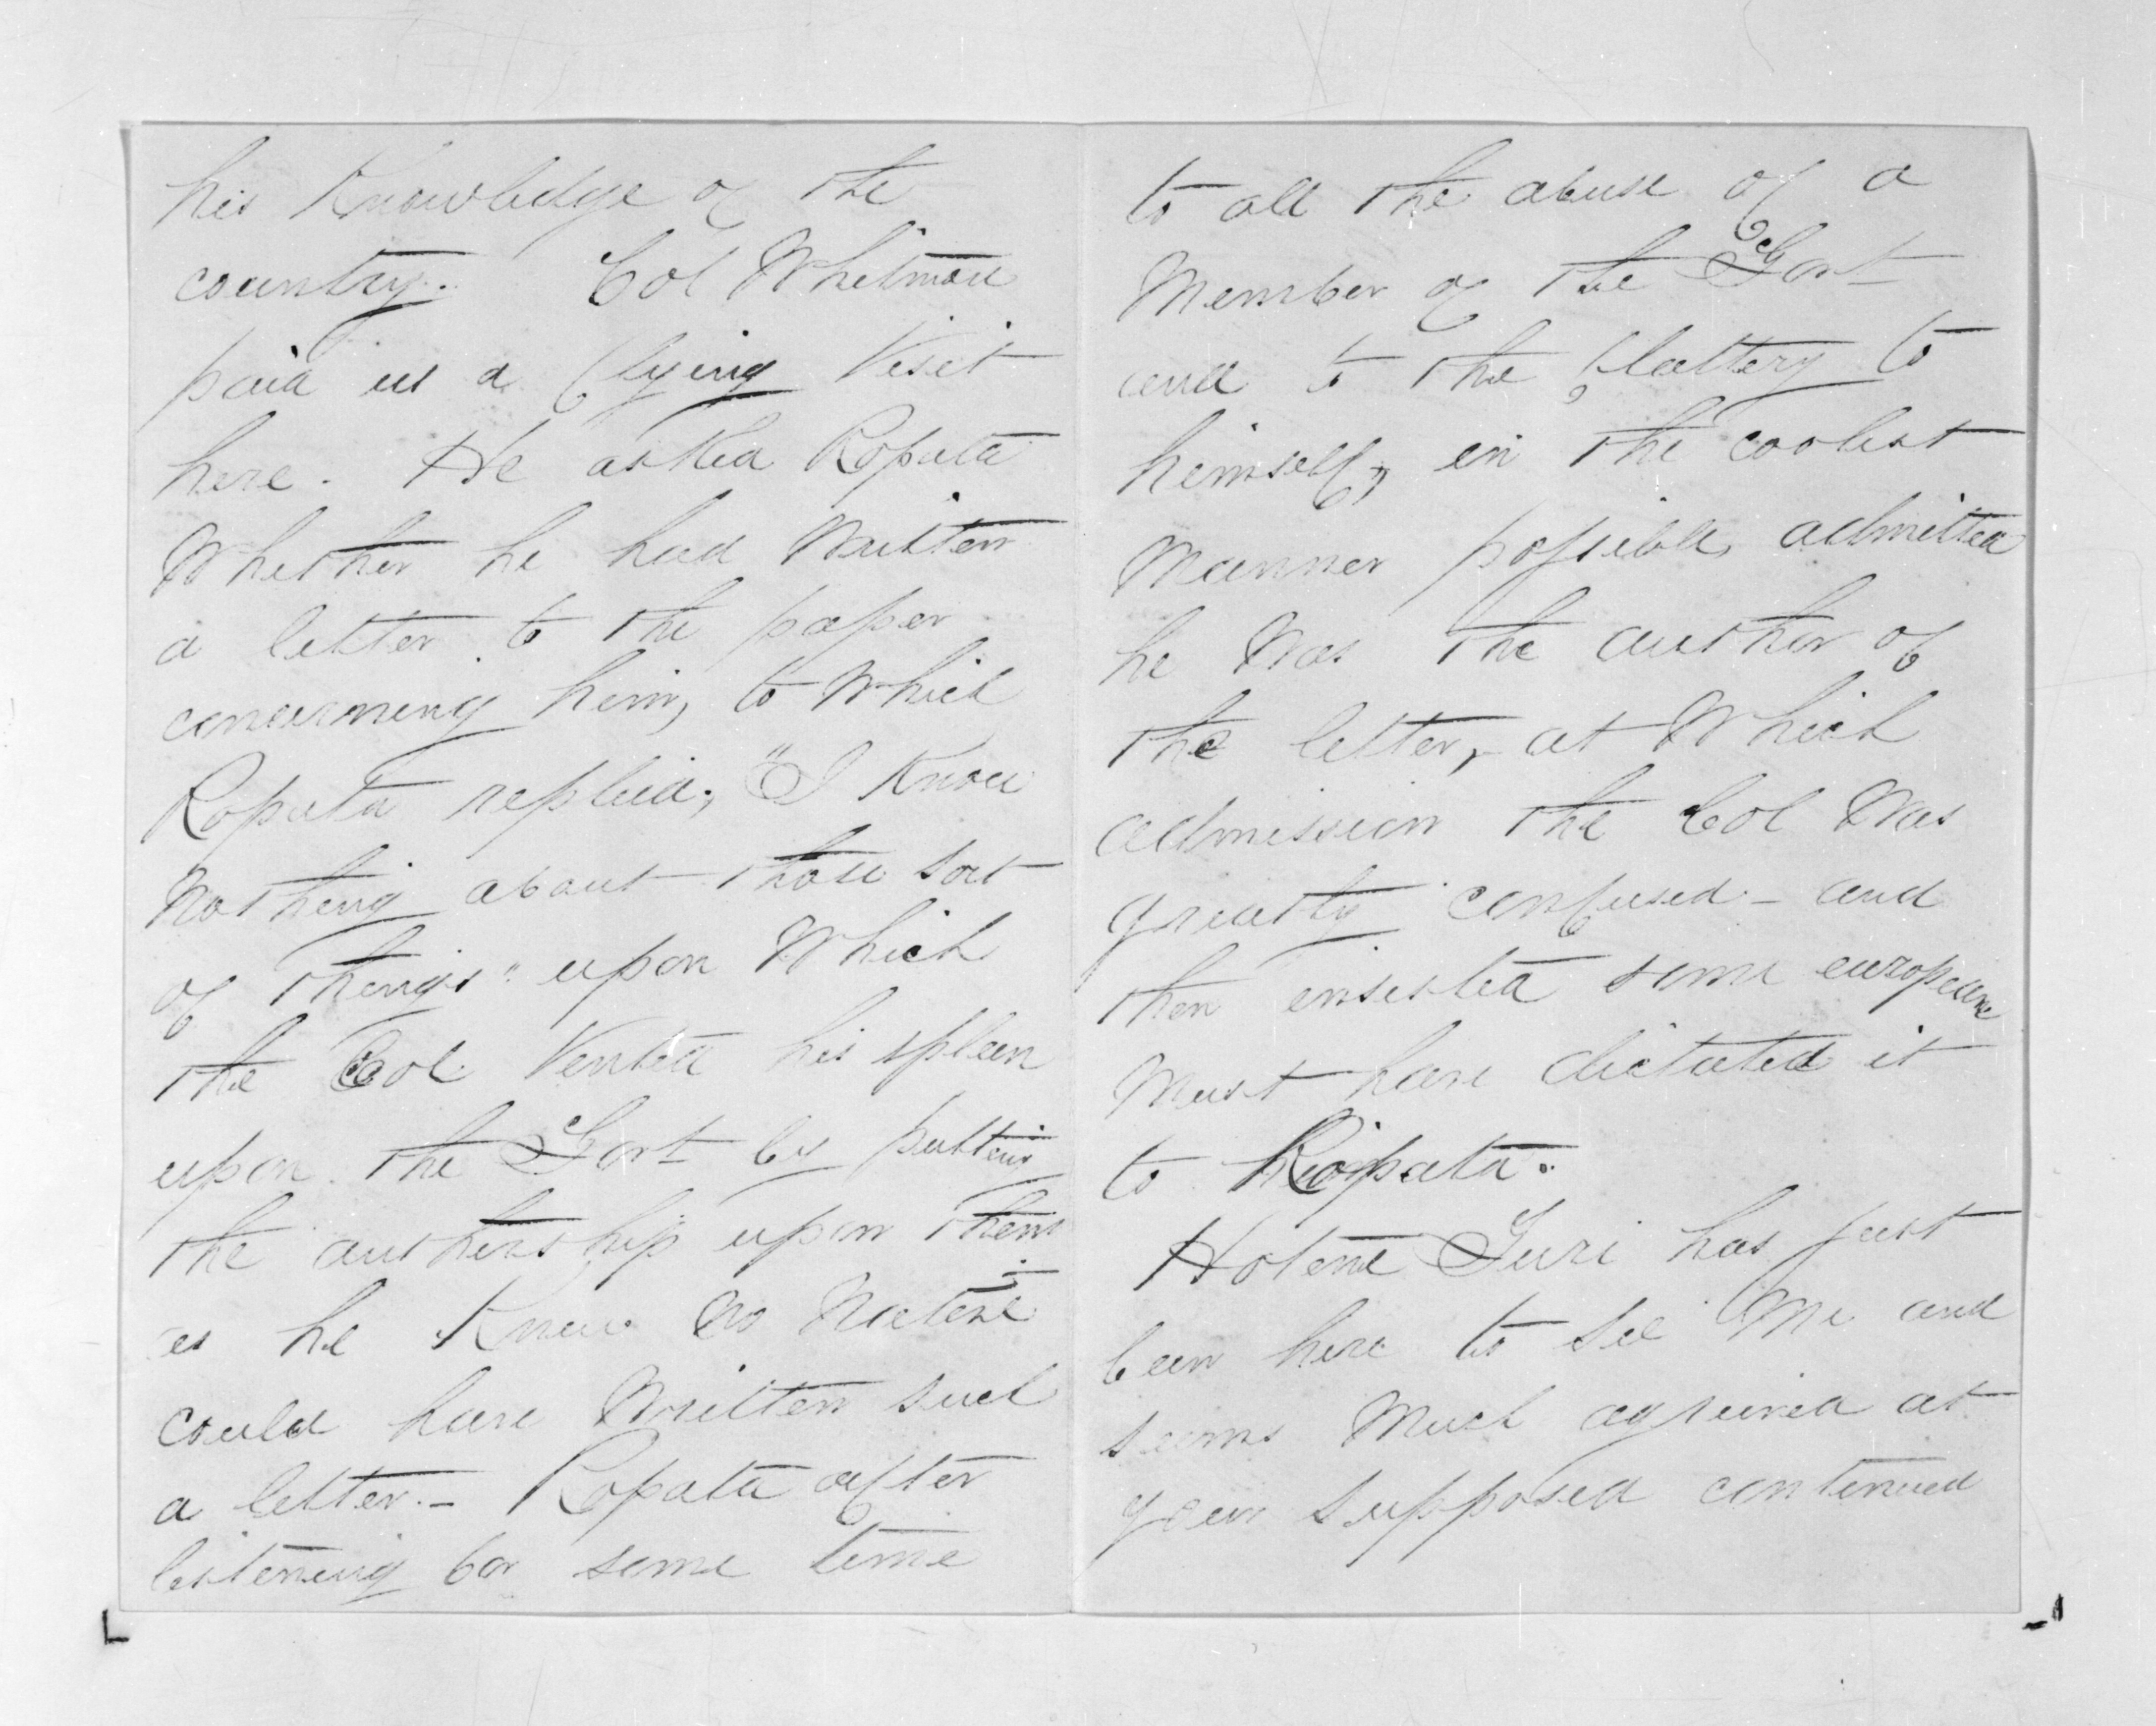 his Knowledge of the
country. Col Whitmore
paid us a flying visit
here. He asked Ropata
Whether he had Written
a letter to the paper
concerning him, to Which
Ropata replied, "I Know
"nothing about those sort
of things" upon Which
the Col Vented his spleen
upon the Govt by putting
the authorship upon them
as he Knew no Native
could have Written such
a letter. - Ropata after
listening for some time
to all the abuse of a
Member of the Govt
and to the flattery to
himself, in the coolest
Manner possible, admitted
he Was the author of
the letter, at Which
admission the Col Was
greatly confused - and
then insisted some european
Must have dictated it
to Ropata.
Hotene Turi has just
been here to see Me and
seems Much agrieved at
your supposed continued